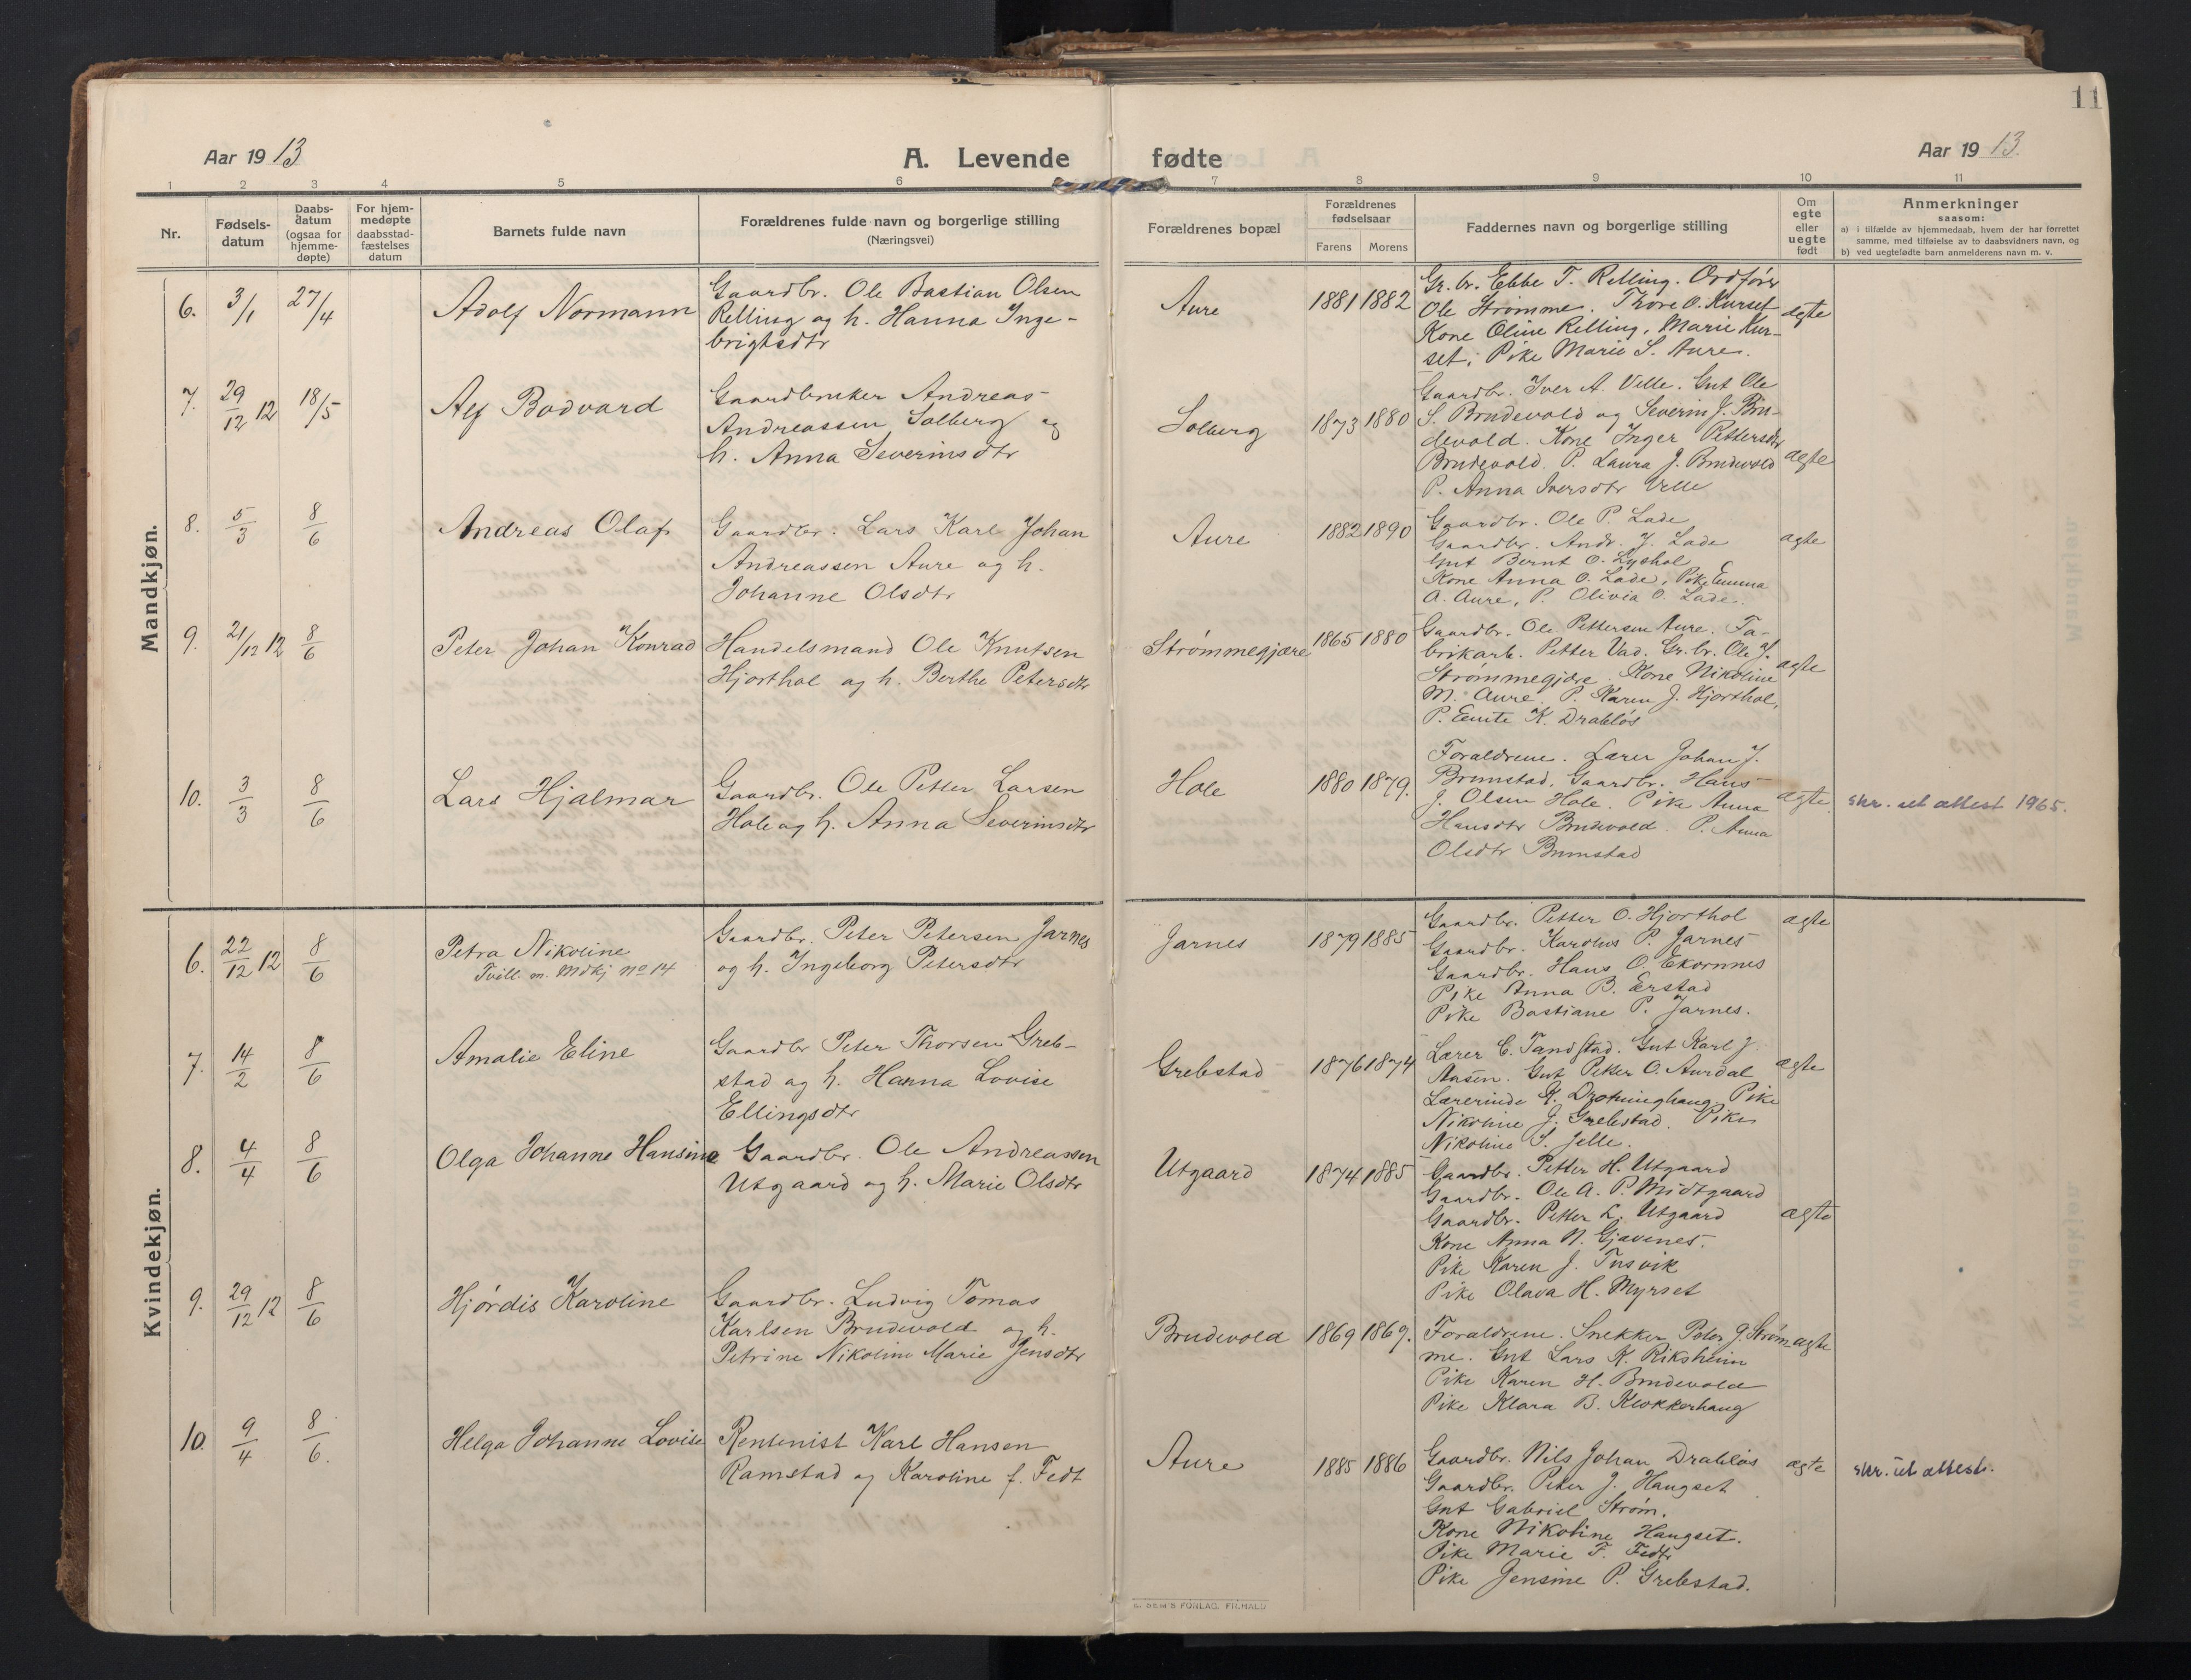 11
Aar 1913
A. Levende fødte
Aar 1913.
1 2 3 4 5 6 7 8 9 10 11
Nr.
Fødsels-
datum
Daabs-
datum
(ogsaa for
hjemme-
døpte)
For hjem-
medøpte
daabsstad-
fæstelses
datum
Barnets fulde navn
Forældrenes fulde navn og borgerlige stilling
(Næringsvei)
Forældrenes bopæl
Forældrenes
fødselsaar
Farens Morens
Faddernes navn og borgerlige stilling
Om
egte
eller
uegte
født
Anmerkninger
saasom:
a) i tilfælde av hjemmedaab, hvem der har forrettet
samme, med tilføielse av to daabsvidners navn, og
b) ved uegtefødte barn anmelderens navn m. v.
Mandkjøn.
6. 3/1 27/4
Adolf Normann
Gaardbr. Ole Bastian Olsen
Relling og h. Hanna Inge-
brigtsdtr
Aure
1881 1882
Gr. br. Ebbe T. Relling. Ordfører
Ole Strømme. Thore O. Kurset
Kone Oline Relling, Marie Kur-
set; Pike Marie S. Aure.
ægte
7. 29/12 12 18/5
Alf Bodvard
Gaardbruker Andreas
Andreassen Solberg og
h. Anna Severinsdtr
Solberg
1873 1880
Gaardbr. Iver A. Velle. Gut Ole
S. Brudevold og Severin J. Bru-
devold. Kone Inger Pettersdtr
Brudevold. P. Laura J. Brudevold
P. Anna Iversdtr Velle
ægte
8. 5/3 8/6
Andreas Olaf
Gaardbr. Lars Karl Johan
Andreassen Aure og h.
Johanne Olsdtr
Aure
1882 1890
Gaardbr. Ole P. Lade
Gaardbr. Andr. J. Lade
Gut Bernt O. Lyshol
Kone Anna O. Lade, Pike Emma
A. Aure, P. Olivia O. Lade.
ægte
9. 21/12 12 8/6
Peter Johan Konrad
Handelsmand Ole Knutsen
Hjorthol og h. Berthe Petersdtr
Strømmegjære
1865 1880
Gaardbr. Ole Pettersen Aure. Fa-
brikarb. Petter Vad. Gr. br. Ole J.
Strømmegjære. Kone Nikoline
M. Aure. P. Karen J. Hjorthol,
P. K. Drabløs
ægte
10. 3/3 8/6
Lars Hjalmar
Gaardbr. Ole Petter Larsen
Hole og h. Anna Severinsdtr
Hole
1880 1879.
Forældrene. Lærer Johan J.
Brunstad. Gaardbr. Hans
J. Olsen Hole. Pike Anna
Hansdtr Brudevold. P. Anna
Olsdtr Brunstad
ægte
skr. ut attest 1965.
Kvindekjøn.
6. 22/12 12 8/6
Petra Nikoline
Tvill. m. Mdkj no 14
Gaardbr. Peter Petersen Jarnes
og h. Ingeborg Petersdtr
Jarnes
1879 1885
Gaardbr. Petter O. Hjorthol
Gaardbr. Karolus P. Jarnes
Gaardbr. Hans O. Ekornnes
Pike Anna B. Erstad
Pike Bastiane P. Jarnes.
ægte
7. 14/2 8/6
Amalie Eline
Gaardbr Peter Thorsen Greb-
stad og h. Hanna Lovise
Ellingsdtr
Grebstad
1876 1874
Lærer C. Tandstad. Gut Karl J.
Aasen. Gut Petter O. Aurdal
Lærerinde K. Drotninghaug. Pike
Nikoline J. Grebstad. Pike
Nikoline S. Jelle.
ægte
8. 4/4 8/6
Olga Johanne Hansine
Gaardbr. Ole Andreassen
Utgaard og h. Marie Olsdtr
Utgaard
1874 1885
Gaardbr. Petter H. Utgaard
Gaardbr. Ole A. P. Midtgaard
Gaardbr. Petter L. Utgaard
Kone Anna N. Gjævenes.
Pike Karen J. Tusvik
Pike Olava H. Myrset
ægte
9. 29/12 12 8/6
Hjørdis Karoline
Gaardbr. Ludvig Tomas
Karlsen Brudevold og h.
Petrine Nikoline Marie Jensdtr
Brudevold
1869 1869.
Forældrene. Snekker Peter J. Strøm-
me. Gut Lars K. Riksheim
Pike Karen H. Brudevold
Pike Klara B. Klokkerhaug
ægte
10. 9/4 8/6.
Helga Johanne Lovise
Rentenist Karl Hansen
Ramstad og Karoline f. Fedt
Aure
1885 1886
Gaardbr. Nils Johan Drabløs
Gaardbr. Peter J. Haugset
Gut Gabriel Strøm.
Kone Nikoline Haugset.
Pike Marie F. Fedt
Pike Jensine P. Grebstad.
ægte
skr. ut attest.
E. SEM'S FORLAG, FR.HALD